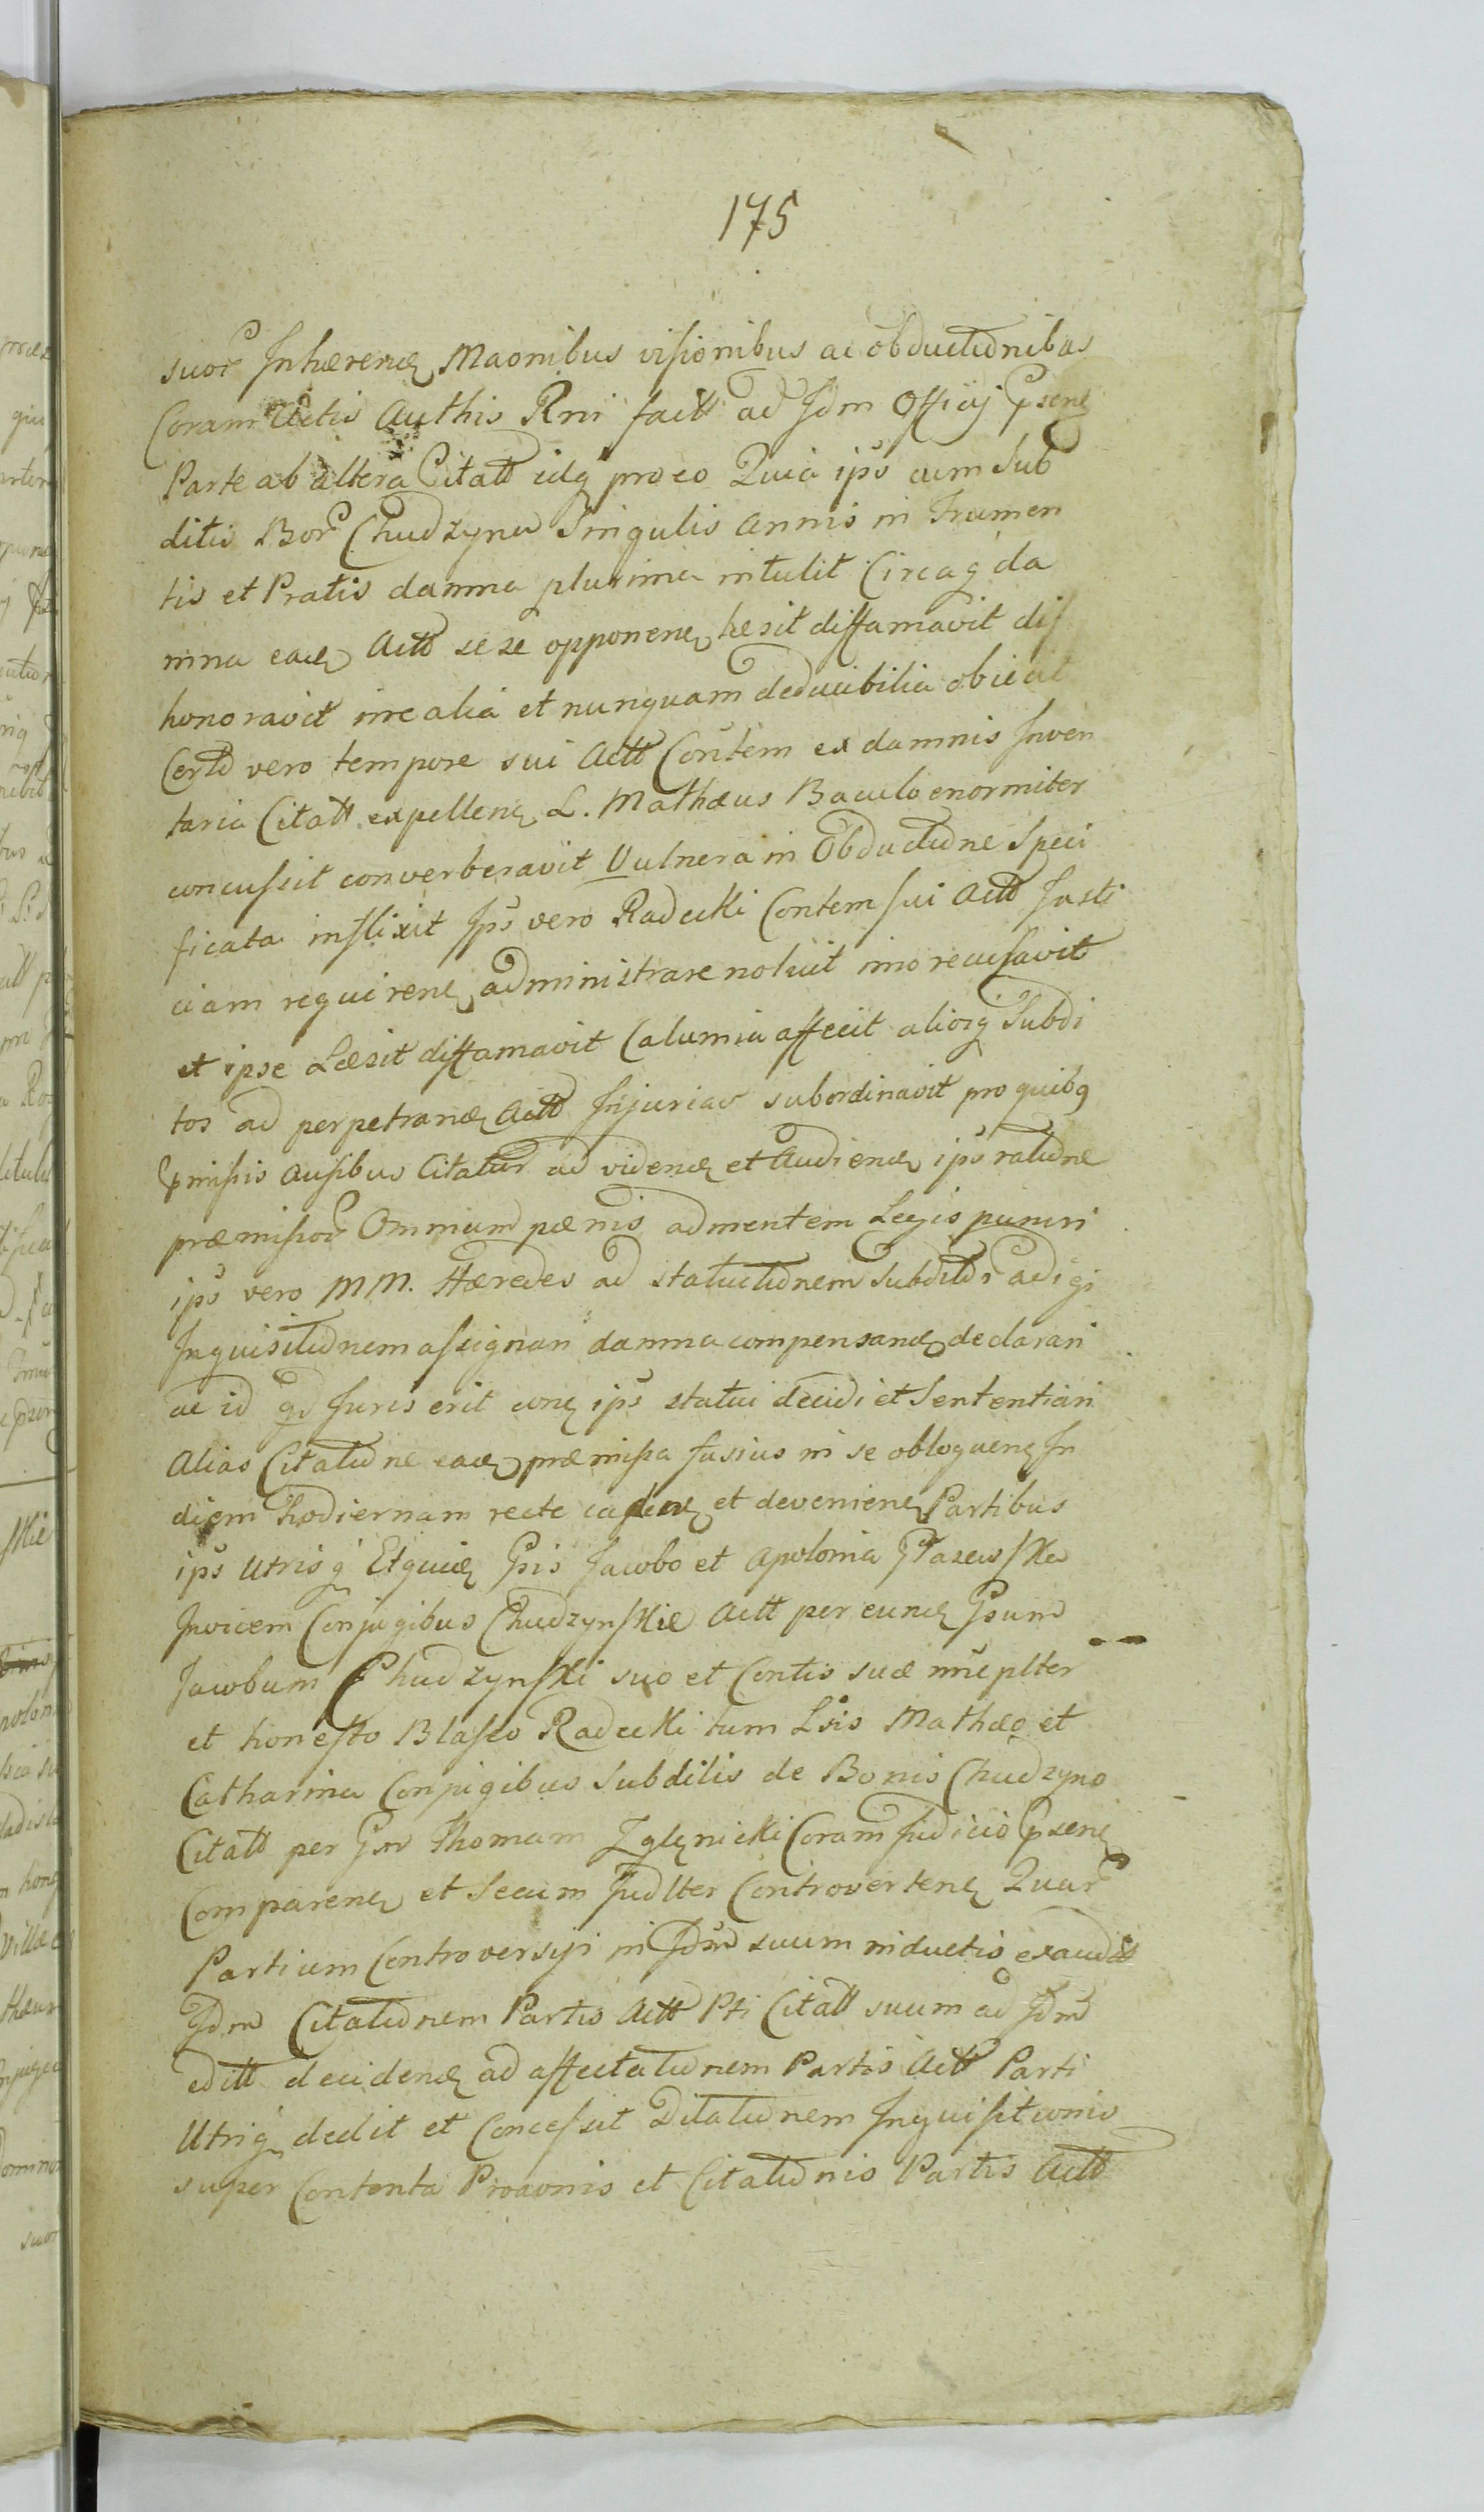 175
suor Inhærend Maonibus visionibus ac obductionibus
Coram Actis Authis Rni fact ad Jdm Officij Psens
Parte ab altera Citatt idq pro eo Quia ips cum Sub
ditis Bor Chudzyna Singulis annis in Frumen
tis et Pratis damna plurima intulit Circa q da
mna eade Actt se se opponens læsit diffamavit dis
honoravit irrealia et nunquam deducibilia obiecit
Certo vero tempore sui Actt Contem ex damnis Inven
taria Citatt expellens L. Mathæus Baculo enormiter
concussit converberavit Vulnera in Obductione Speci
ficata inflixit Ips vero Radecki Contem sui Actt Justi
ciam requirens administrare noluit imo recusavit
et ipse Læsit diffamavit Calumia affecit aliosq Subdi
tos ad perpetrand Actt Injurias subordinavit pro quibq
Pmissis ausibus Citatur ad vidend et Audiend ips ratione
præmissor Omnium pænis ad mentem Legis puniri
ips vero MM. Hæredes ad statuitionem Subditor adigi
Inquisitionem assignari damna compensand declarari
ac id qd Juris erit cone ips statui decidi et Sententiari
Alias Citatione eade præmissa fusius in se obloquens In
diem hodiernam recte caden et deveniens Partibus
ips Utrisq Etquide Gsis Jacobo et Apolonia
Invicem Conjugibus Chudzynskie Actt per eund Gsum
Jacobum Chudzynski suo et Contis suæ nnie plter
et honesto Blaseo Radecki tum Lsis Mathæo et
Catharina Conjugibus Subditis de Bonis Chudzyno
Citatt per Gsu Thomam Zglenicki Coram Judicio Psens
Comparens et Secum Judlter Controvertens Quar
Partium Controversijs in Jdm suum inductis exaudit
Jdm Citationem Partis Actt Pti Citatt suum ad Jdm
editt decidend ad affectationem Partis Actt Parti
Utriq dedit et Concessit Dilationem Inquisitionis
super Contenta Proaonis et Citationis Partis Actt